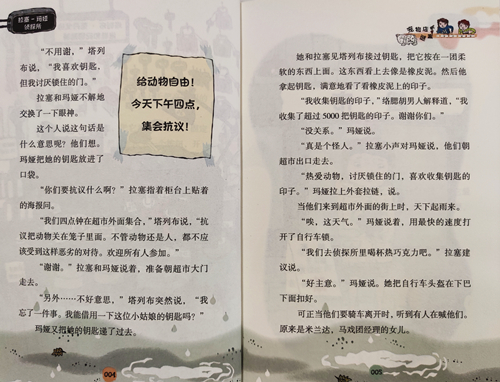 拉塞-玛娅
侦探所
“不用谢，”塔列
布说，“我喜欢钥匙，
但我讨厌锁住的门。”
拉塞和玛娅不解地
交换了一下眼神。
这个人说这句话是
什么意思呢？他们想。
玛娅把她的钥匙放进了
口袋。
给动物自由！
今天下午四点，
集会抗议！
“你们要抗议什么啊？”拉塞指着柜台上贴着
的海报问。
“我们四点钟在超市外面集合，”塔列布说，“抗
议把动物关在笼子里面。不管动物还是人，都不应
该受到这样恶劣的对待。欢迎所有人参加。”
“谢谢。”拉塞和玛娅说着，准备朝超市大门
走去。
“另外……不好意思，”塔列布突然说，“我忘
了一件事。我能借用一下这位小姑娘的钥匙吗？”
玛娅又把她的钥匙递了过去。
004
她和拉塞见塔列布接过钥匙，把它按在一团柔
软的东西上面。这东西看上去像是橡皮泥。然后他
拿起钥匙，满意地看了看橡皮泥上的印子。
“我收集钥匙的印子，”络腮胡男人解释道，“我
收集了超过 5000 把钥匙的印子。谢谢你们。”
“没关系。”玛娅说。
“真是个怪人。”拉塞小声对玛娅说，他们朝
超市出口走去。
“热爱动物，讨厌锁住的门，喜欢收集钥匙的
印子。”玛娅拉上外套拉链，说。
当他们来到超市外面的街上时，天下起雨来。
“唉，这天气。”玛娅说着，用最快的速度打
开了自行车锁。
“我们去侦探所里喝杯热巧克力吧。”拉塞建
议说。
“好主意。”玛娅说。她把自行车头盔在下巴
下面扣好。
可正当他们要骑车离开时，听到有人在喊他们。
原来是米兰达，马戏团经理的女儿。
005